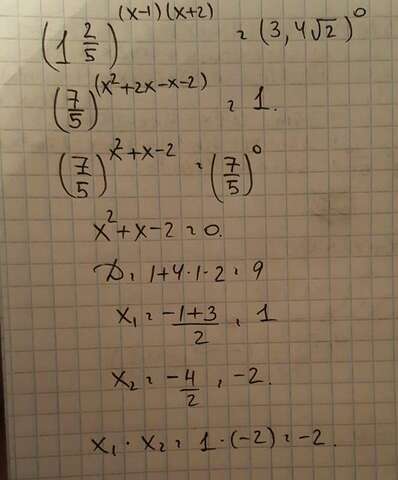 (1 2/5)^(x-1)(x+2) = (3,4√2)^0
(7/5)^(x²+2x-x-2) = 1.
(7/5)^x²+x-2 = (7/5)^0
x²+x-2=0.
D=1+4·1·2=9
x₁=(-1+3)/2, 1
x₂=-4/2, -2.
x₁·x₂=1·(-2)=-2.